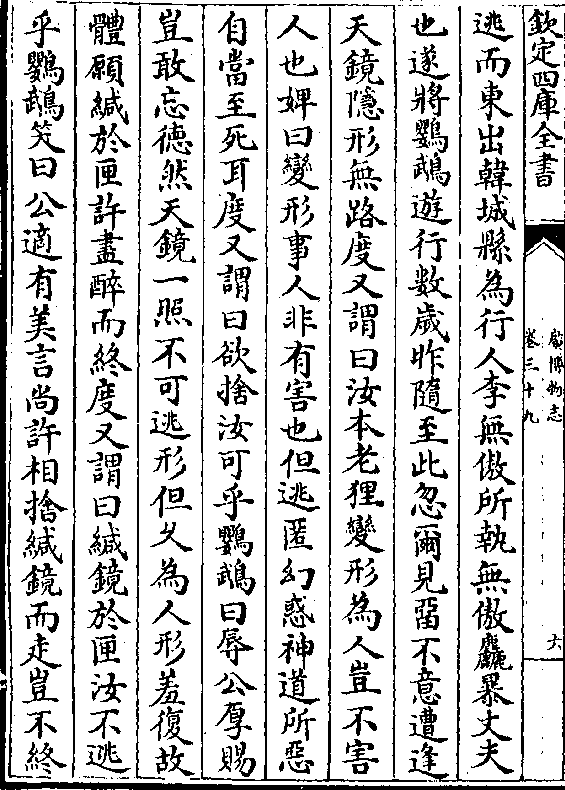 欽定四庫全書
廣博物志
卷三十九
六
逃而東出韓城縣為行人李無傲所執無傲麤暴丈夫
也遂將鸚鵡遊行數歲昨隨至此忽爾見留不意遭逢
天鏡隱形無路度又謂曰汝本老狸變形為人豈不害
人也婢曰變形事人非有害也但逃匿幻惑神道所惡
自當至死耳度又謂曰欲捨汝可乎鸚鵡曰辱公厚賜
豈敢忘德然天鏡一照不可逃形但久為人形羞復故
體願緘於匣許盡醉而終度又謂曰緘鏡於匣汝不逃
乎鸚鵡笑曰公適有美言尚許相捨緘鏡而走豈不終